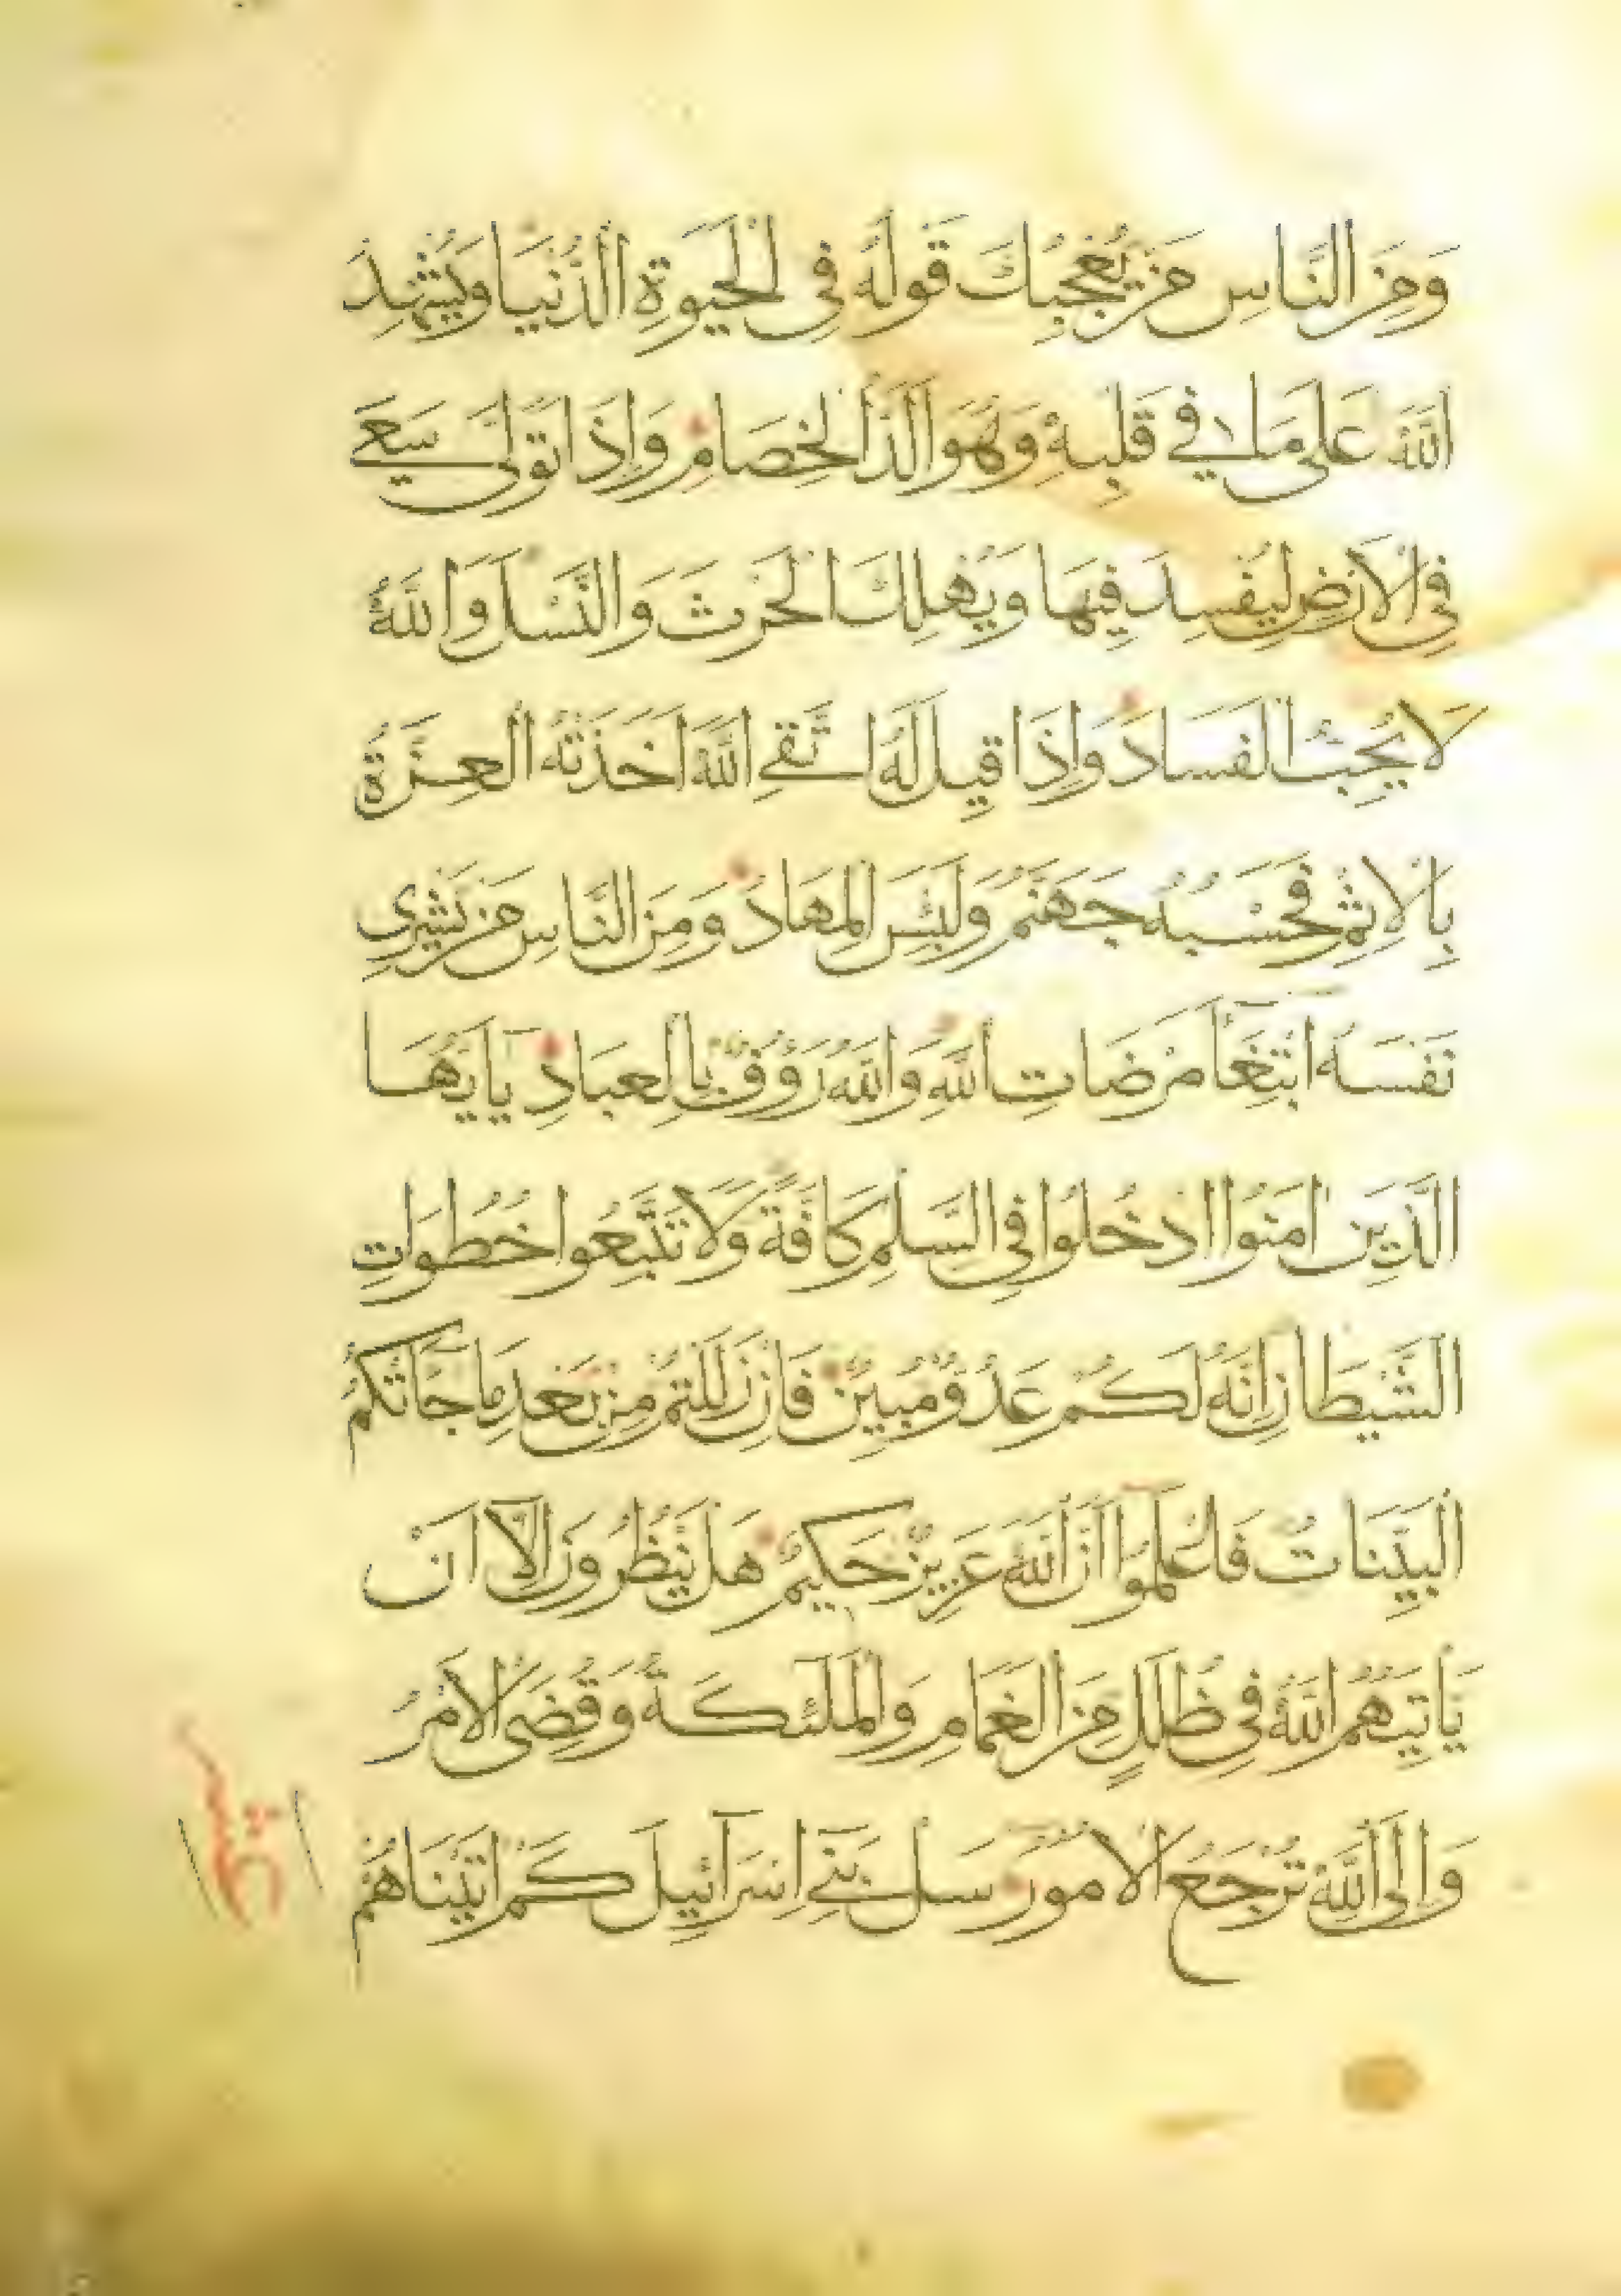 وَمِنَ النَّاسِ مَن يُعْجِبُكَ قَوْلُهُ فِي الْحَيَوةِ الدُّنْيَا وَيُشْهِدُ
اللَّهَ عَلَى مَا فِي قَلْبِهِ وَهُوَ أَلَدُّ الْخِصَامِ وَإِذَا تَوَلَّى سَعَى
فِي الْأَرْضِ لِيُفْسِدَ فِيهَا وَيُهْلِكَ الْحَرْثَ وَالنَّسْلَ وَاللَّهُ
لَا يُحِبُّ الْفَسَادَ وَإِذَا قِيلَ لَهُ اتَّقِ اللَّهَ أَخَذَتْهُ الْعِزَّةُ
بِالْإِثْمِ فَحَسْبُهُ جَهَنَّمُ وَلَبِئْسَ الْمِهَادُ وَمِنَ النَّاسِ مَن يَشْرِي
نَفْسَهُ ابْتِغَآءَ مَرْضَاتِ اللَّهِ وَاللَّهُ رَؤُوفٌ بِالْعِبَادِ يَا أَيُّهَا
الَّذِينَ آمَنُوا ادْخُلُوا فِي السَّلْمِ كَافَّةً وَلَا تَتَّبِعُوا خُطُوَاتِ
الشَّيْطَانِ إِنَّهُ لَكُمْ عَدُوٌّ مُبِينٌ فَإِن زَلَلْتُمْ مِن بَعْدِ مَا جَاءَتْكُمُ
الْبَيِّنَاتُ فَاعْلَمُوا أَنَّ اللَّهَ عَزِيزٌ حَكِيمٌ هَلْ يَنظُرُونَ إِلَّا أَنْ
يَأْتِيَهُمُ اللَّهُ فِي ظُلَلٍ مِنَ الْغَمَامِ وَالْمَلَئِكَةُ وَقُضِيَ الْأَمْرُ
وَإِلَى اللَّهِ تُرْجَعُ الْأُمُورُ سَلْ بَنِي إِسْرَآئِيلَ كَمْ آتَيْنَاهُمْ